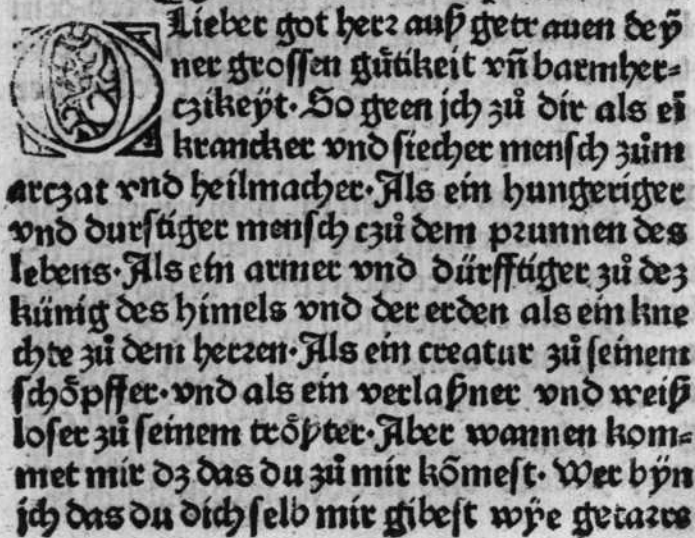 O Lieber got herꝛ auß getrauen deÿ
ner groſſen guͤtikeit vn̄ barmher⸗
czikeÿt. So geen jch zuͦ dir als eī
krancker vnd ſiecher menſch zuͦm
arczat vnd heilmacher. Als ein hungeriger
vnd durſtiger menſch czuͦ dem pꝛunnen des
lebens. Als ein armer vnd dürfftiger zuͦ deꝫ
künig des himels vnd der erden als ein kne
chte zuͦ dem herꝛen. Als ein creatur zuͦ ſeinem
ſchoͤpffer. vnd als ein verlaßner vnd weiß
loſer zuͦ ſeinem troͤſter. Aber wannen kom⸗
met mir dꝫ das du zuͦ mir kōmeſt. Wer bÿn
jch das du dich ſelb mir gibeſt wÿe getaꝛre